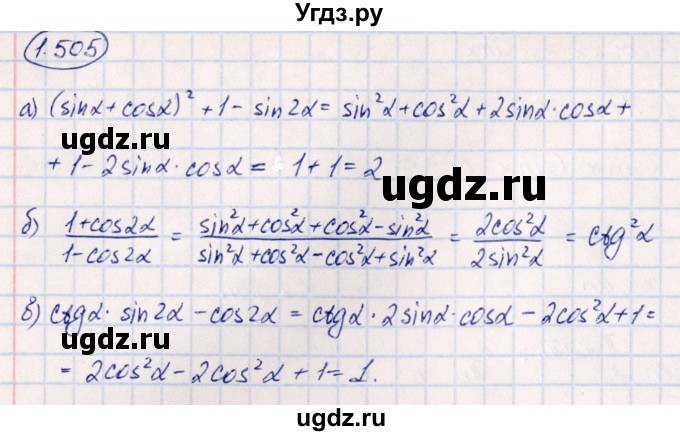 Угдз.ру
1.505
а) (sinα+cosα)² + 1 - sin2α = sin²α + cos²α + 2sinα·cosα +
+ 1 - 2sinα·cosα = 1 + 1 = 2
б) (1+cos2α)/(1-cos2α) = (sin²α+cos²α+cos²α-sin²α)/(sin²α+cos²α-cos²α+sin²α) = 2cos²α/2sin²α = ctg²α
в) ctgα · sin2α - cos2α = ctgα · 2sinα·cosα - 2cos²α + 1 =
= 2cos²α - 2cos²α + 1 = 1.
ugdz.ru
ugdz.ru
ugdz.ru
ugdz.ru
ugdz.ru
ugdz.ru
ugdz.ru